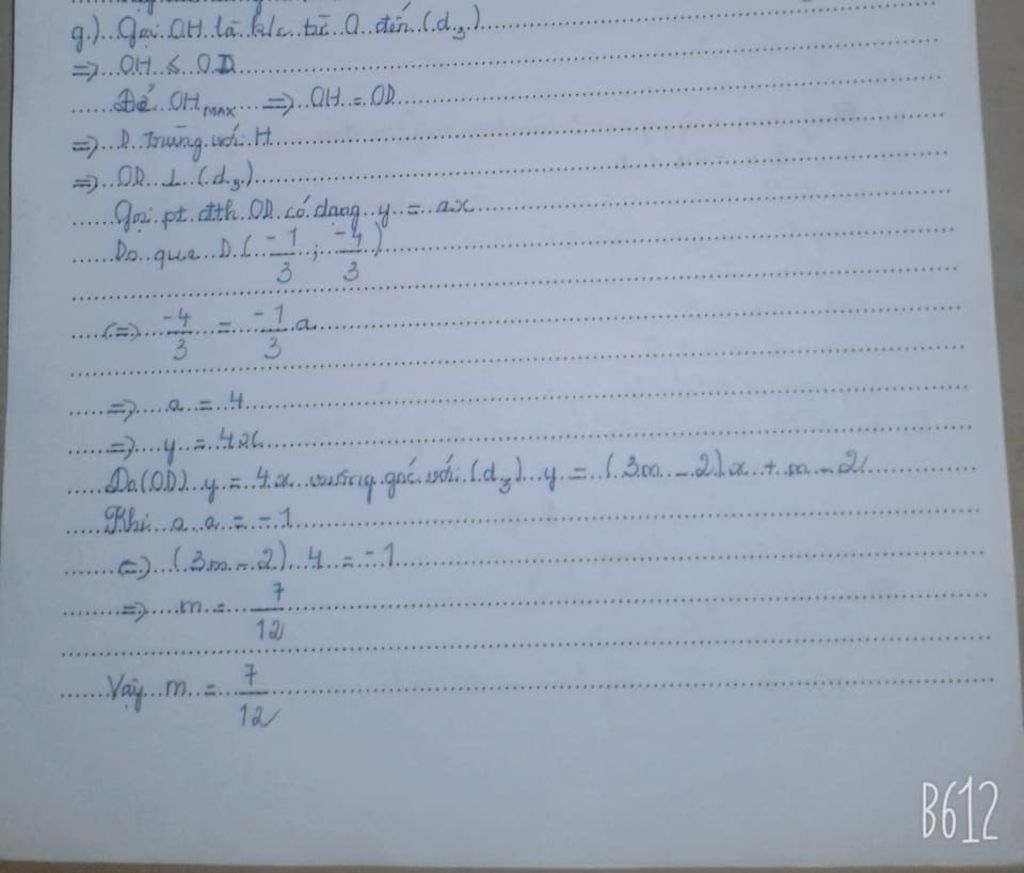 g.) Gọi OH là k/c từ O đến (d₃)
=> OH ≤ OD
Để OH MAX => OH = OD
=> D trùng với H
=> OD ⊥ (d₃)
Gọi pt đth OD có dạng y = ax
Do qua D ( -1/3 ; -4/3 )
<=> -4/3 = -1/3 a
=> a = 4
=> y = 4x
Do (OD) y = 4x vuông góc với (d₃) y = (3m - 2)x + m - 2
Khi a.a = -1
<=> (3m - 2) . 4 = -1
=> m = 7/12
Vậy m = 7/12
B612